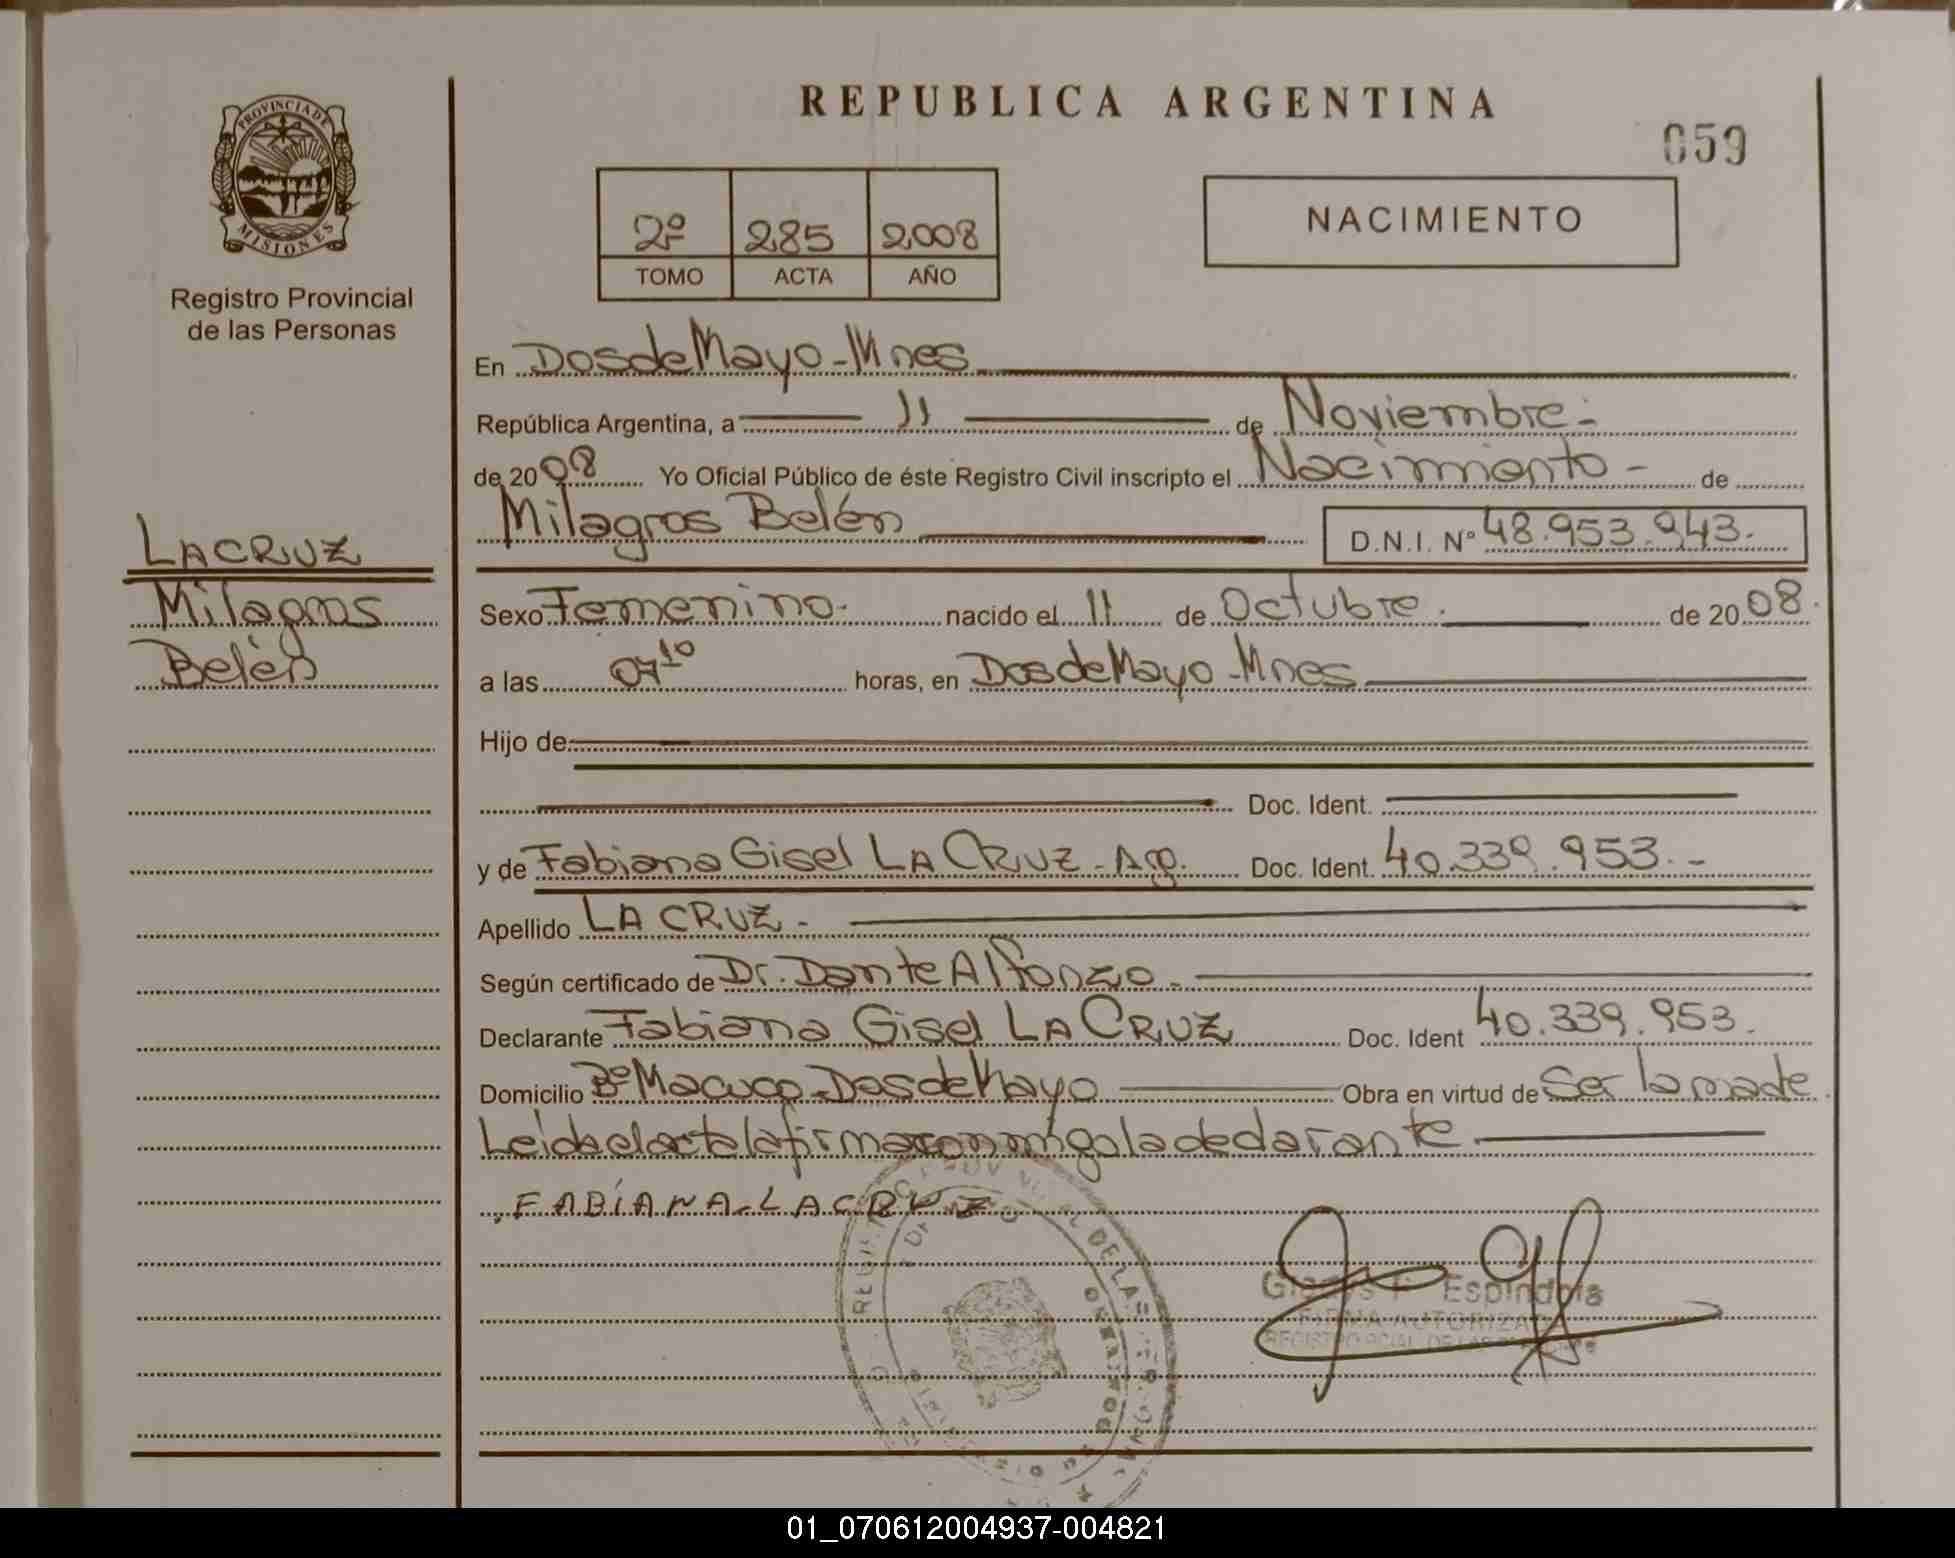 REPUBLICA ARGENTINA
059
PROVINCIA DE
MISIONES
Registro Provincial
de las Personas
2º 285 2008
TOMO ACTA AÑO
NACIMIENTO
En Dos de Mayo - Mnes
República Argentina, a 11 de Noviembre.-
de 2008 Yo Oficial Público de éste Registro Civil inscripto el Nacimiento - de
Milagros Belén D.N.I. Nº 48.953.943.
LACRUZ
Milagros
Belén
Sexo Femenino. nacido el 11 de Octubre. de 2008.
a las 07 10 horas, en Dos de Mayo - Mnes
Hijo de
Doc. Ident.
y de Fabiana Gisel LA CRUZ - Arg. Doc. Ident. 40.339.953.-
Apellido LA CRUZ -
Según certificado de Dr. Dante Alfonzo -
Declarante Fabiana Gisel LA CRUZ Doc. Ident 40.339.953.
Domicilio Bº Macuco - Dos de Mayo Obra en virtud de Ser la madre
Leida el acta la firma con migo la declarante
FABÍANA LACRUZ
Espindola
FIRMA AUTORIZADA
01_070612004937-004821